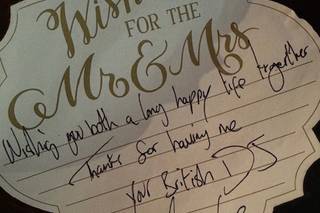 Wish
FOR THE
Mr & Mrs
Wishing you both a long happy life together
Thanks for having me
Your British DJ